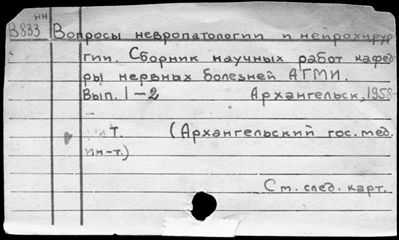 нн
В833 Вопросы невропатологии и нейрохирур
гии. Сборник научных работ кафед
ры нервных болезней АГМИ.
Вып. 1-2 Архангельск, 1958-
т. (Архангельский гос. мед.
ин-т.)
См. след. карт.